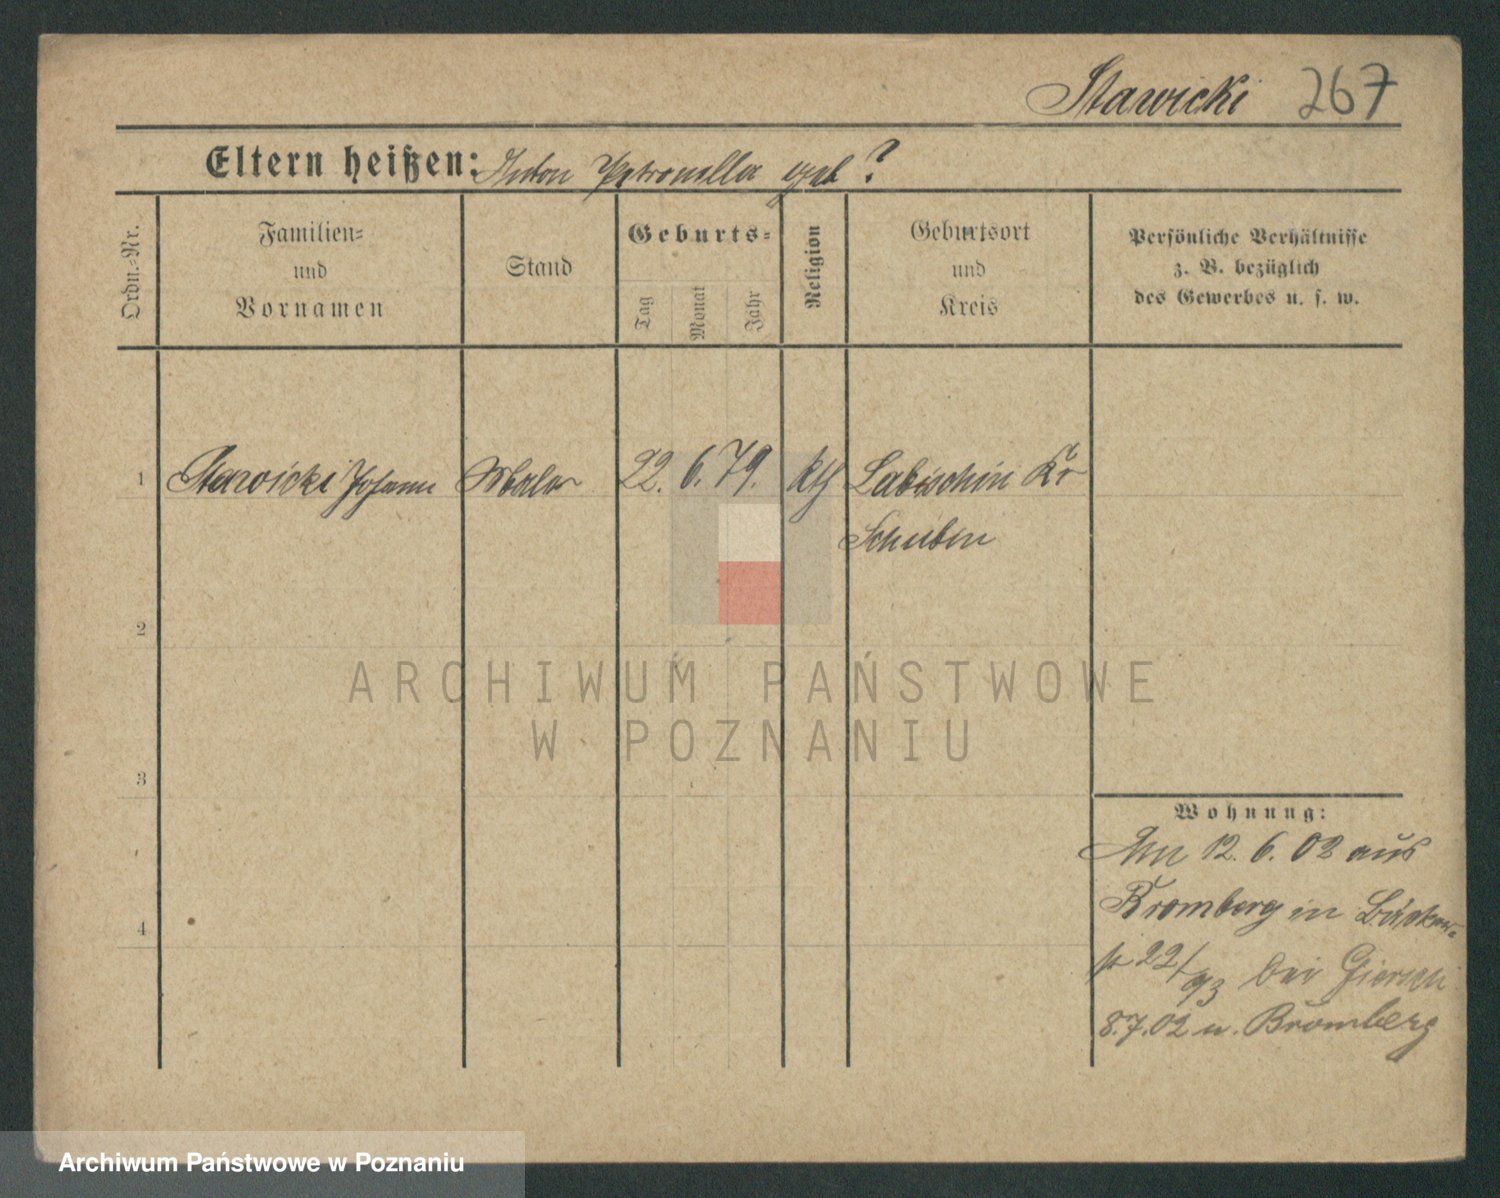 Stawicki 267
Eltern heißen: Anton Petronella geb ?
Ordn.-Nr.
Familien-
und
Vornamen
Stand
Geburts-
Tag
Monat
Jahr
Religion
Geburtsort
und
Kreis
Persönliche Verhältnisse
z. B. bezüglich
des Gewerbes u. s. w.
1 Stawicki Johann Maler 22. 6. 79. kth Labischin Kr
Schubin
2
ARCHIWUM PAŃSTWOWE
W POZNANIU
3
Wohnung:
Am 12. 6. 02 aus
Bromberg in Bäcker-
4
st 22/93 bei Giersch
8.7.02 n. Bromberg
Archiwum Państwowe w Poznaniu